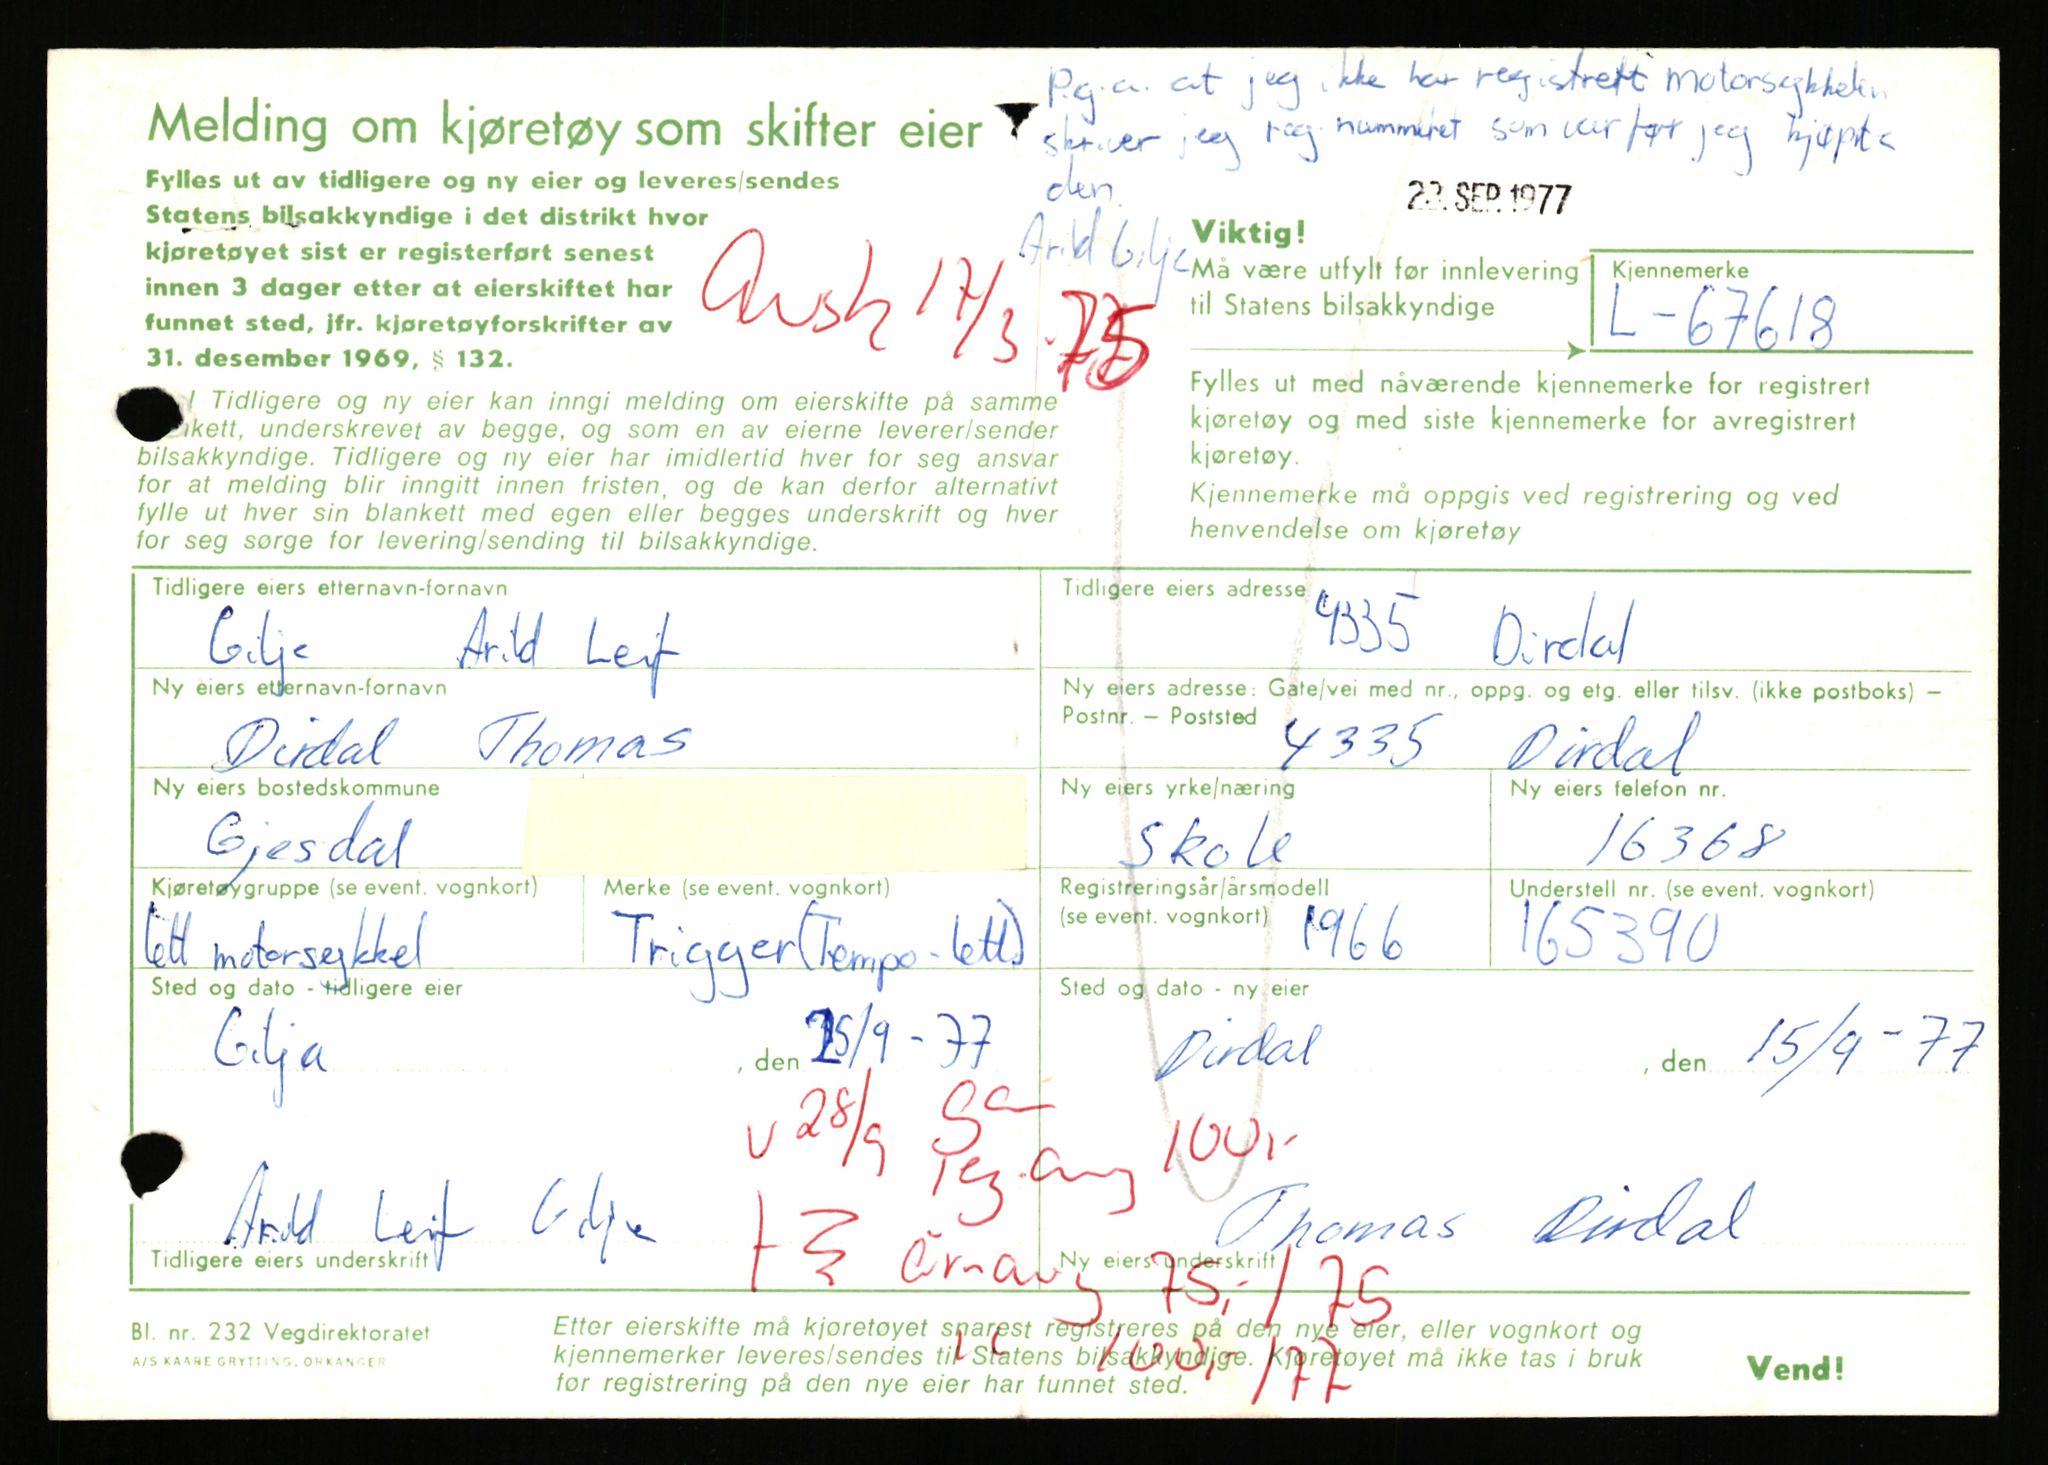 P.g.a. at jeg ikke har registrert motorsykkelen
skriver jeg reg.nummeret som var før jeg kjøpte
den.
Arild Gilje
Melding om kjøretøy som skifter eier
Fylles ut av tidligere og ny eier og leveres/sendes
Statens bilsakkyndige i det distrikt hvor
kjøretøyet sist er registerført senest
innen 3 dager etter at eierskiftet har
funnet sted, jfr. kjøretøyforskrifter av
31. desember 1969, § 132.
17/3-75
23. SEP. 1977
Viktig!
Må være utfylt før innlevering
til Statens bilsakkyndige
Kjennemerke
L-67618
Tidligere og ny eier kan inngi melding om eierskifte på samme
kett, underskrevet av begge, og som en av eierne leverer/sender
bilsakkyndige. Tidligere og ny eier har imidlertid hver for seg ansvar
for at melding blir inngitt innen fristen, og de kan derfor alternativt
fylle ut hver sin blankett med egen eller begges underskrift og hver
for seg sørge for levering/sending til bilsakkyndige.
Fylles ut med nåværende kjennemerke for registrert
kjøretøy og med siste kjennemerke for avregistrert
kjøretøy.
Kjennemerke må oppgis ved registrering og ved
henvendelse om kjøretøy
Tidligere eiers etternavn-fornavn
Gilje Arild Leif
Tidligere eiers adresse
4335 Dirdal
Ny eiers etternavn-fornavn
Dirdal Thomas
Ny eiers adresse: Gate/vei med nr., oppg. og etg. eller tilsv. (ikke postboks) –
Postnr. – Poststed
4335 Dirdal
Ny eiers bostedskommune
Gjesdal
Ny eiers yrke/næring
Skole
Ny eiers telefon nr.
16368
Kjøretøygruppe (se event. vognkort)
lett motorsykkel
Merke (se event. vognkort)
Trigger (Tempo-lett)
Registreringsår/årsmodell
(se event. vognkort)
1966
Understell nr. (se event. vognkort)
165390
Sted og dato - tidligere eier
Gilja, den 15/9-77
Sted og dato - ny eier
Dirdal, den 15/9-77
v 28/9
reg.avg 100,-
Arild Leif Gilje
Tidligere eiers underskrift
Thomas Dirdal
Ny eiers underskrift
+ årsavg 75,- / 75
100,- / 77
Bl. nr. 232 Vegdirektoratet
A/S KAARE GRYTTING, ORKANGER
Etter eierskifte må kjøretøyet snarest registreres på den nye eier, eller vognkort og
kjennemerker leveres/sendes til Statens bilsakkyndige. Kjøretøyet må ikke tas i bruk
før registrering på den nye eier har funnet sted.
Vend!